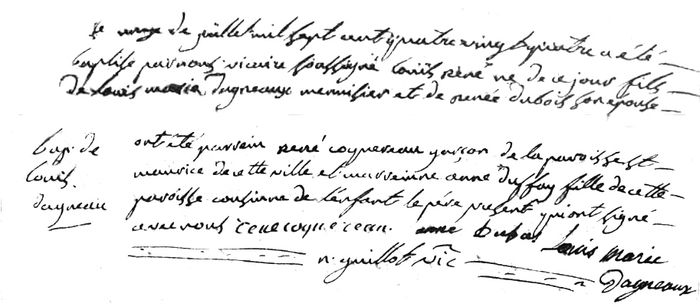 Le onze de juillet mil sept cent quatre vingt quatre a été
baptisé par nous vicaire soussigné louis rené né de ce jour fils
de louis marie dagneaux menuisier et de renée dubois son epouse
ont été parrein rené coquereau garçon de la paroisse st
maurice de cette ville et marreinne anne duffay fille de cette
paroisse cousinne de l'enfant le père present qui ont signé
avec nous rene coquereau. anne Louis marie
n. guillot vic Dagneaux
bap. de
louis.
dagneau